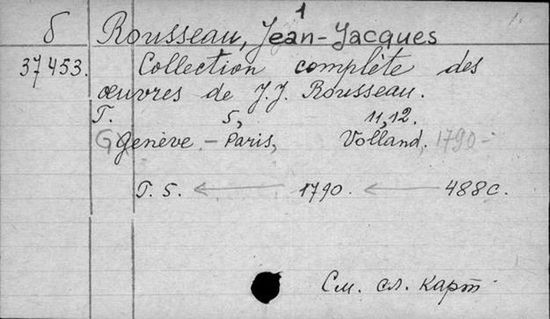 1
б Rousseau, Jean-Jacques
37453. Collection complète des
œuvres de J.J. Rousseau.
T. 5, 11, 12.
Genève – Paris, Volland. 1790-
T. 5. ← 1790. ← 488 c.
См. сл. карт